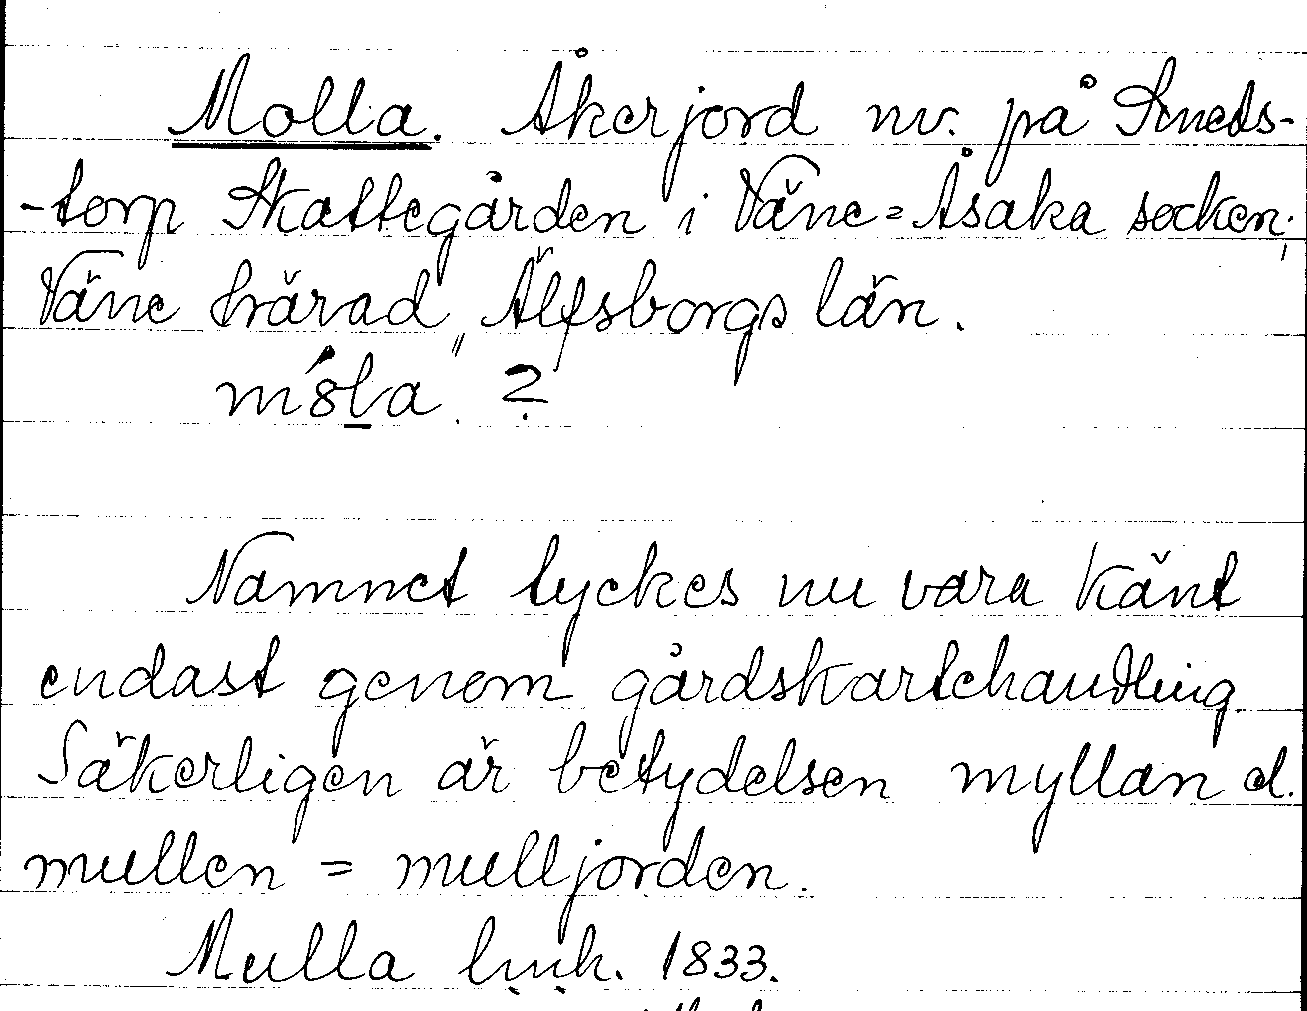 Molla. Åkerjord nv. på Smeds-
-torp Skattegården i Väne=Åsaka socken,
Väne härad, Älfsborgs län.
Namnet tyckes nu vara känt
endast genom gårdskartehandling.
Säkerligen är betydelsen myllan el.
mullen = mulljorden.
Mulla 1833.